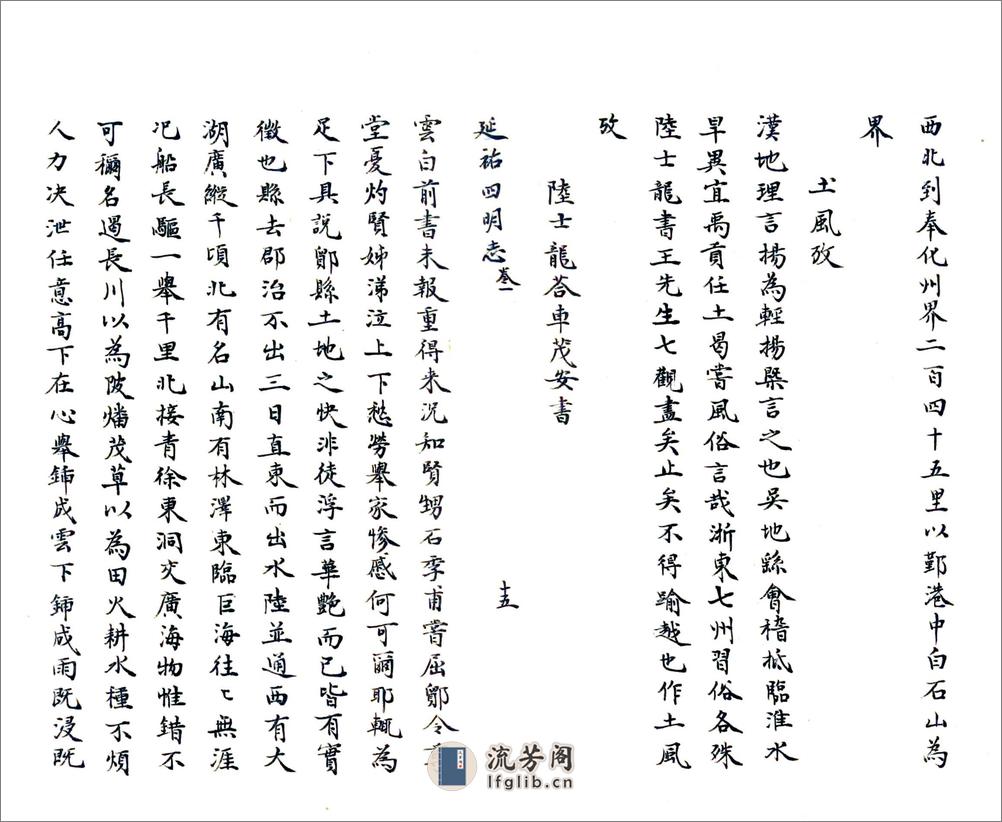 西北到奉化州界二百四十五里以鄞港中白石山為
界
土風攷
漢地理言揚為輕揚槩言之也吳地繇會稽抵臨淮水
旱異宜禹貢任土曷嘗風俗言哉淅東七州習俗各殊
陸士龍書王先生七觀盡矣止矣不得踰越也作土風
攷
陸士龍荅車茂安書
延祐四明志 卷一 十五
雲白前書未報重得来況知賢甥石季甫當屈鄮令
堂憂灼賢姊涕泣上下愁勞舉家慘慼何可爾耶輒為
足下具說鄮縣土地之快非徒浮言華艷而已皆有實
徵也縣去郡治不出三日直東而出水陸並通西有大
湖廣縱千頃北有名山南有林澤東臨巨海往〻無涯
汜船長驅一舉千里北接青徐東洞交廣海物惟錯不
可稱名遏長川以為陂燔茂草以為田火耕水種不煩
人力决泄任意高下在心舉鍤成雲下鍤成雨既浸既
流芳阁
lfglib.cn